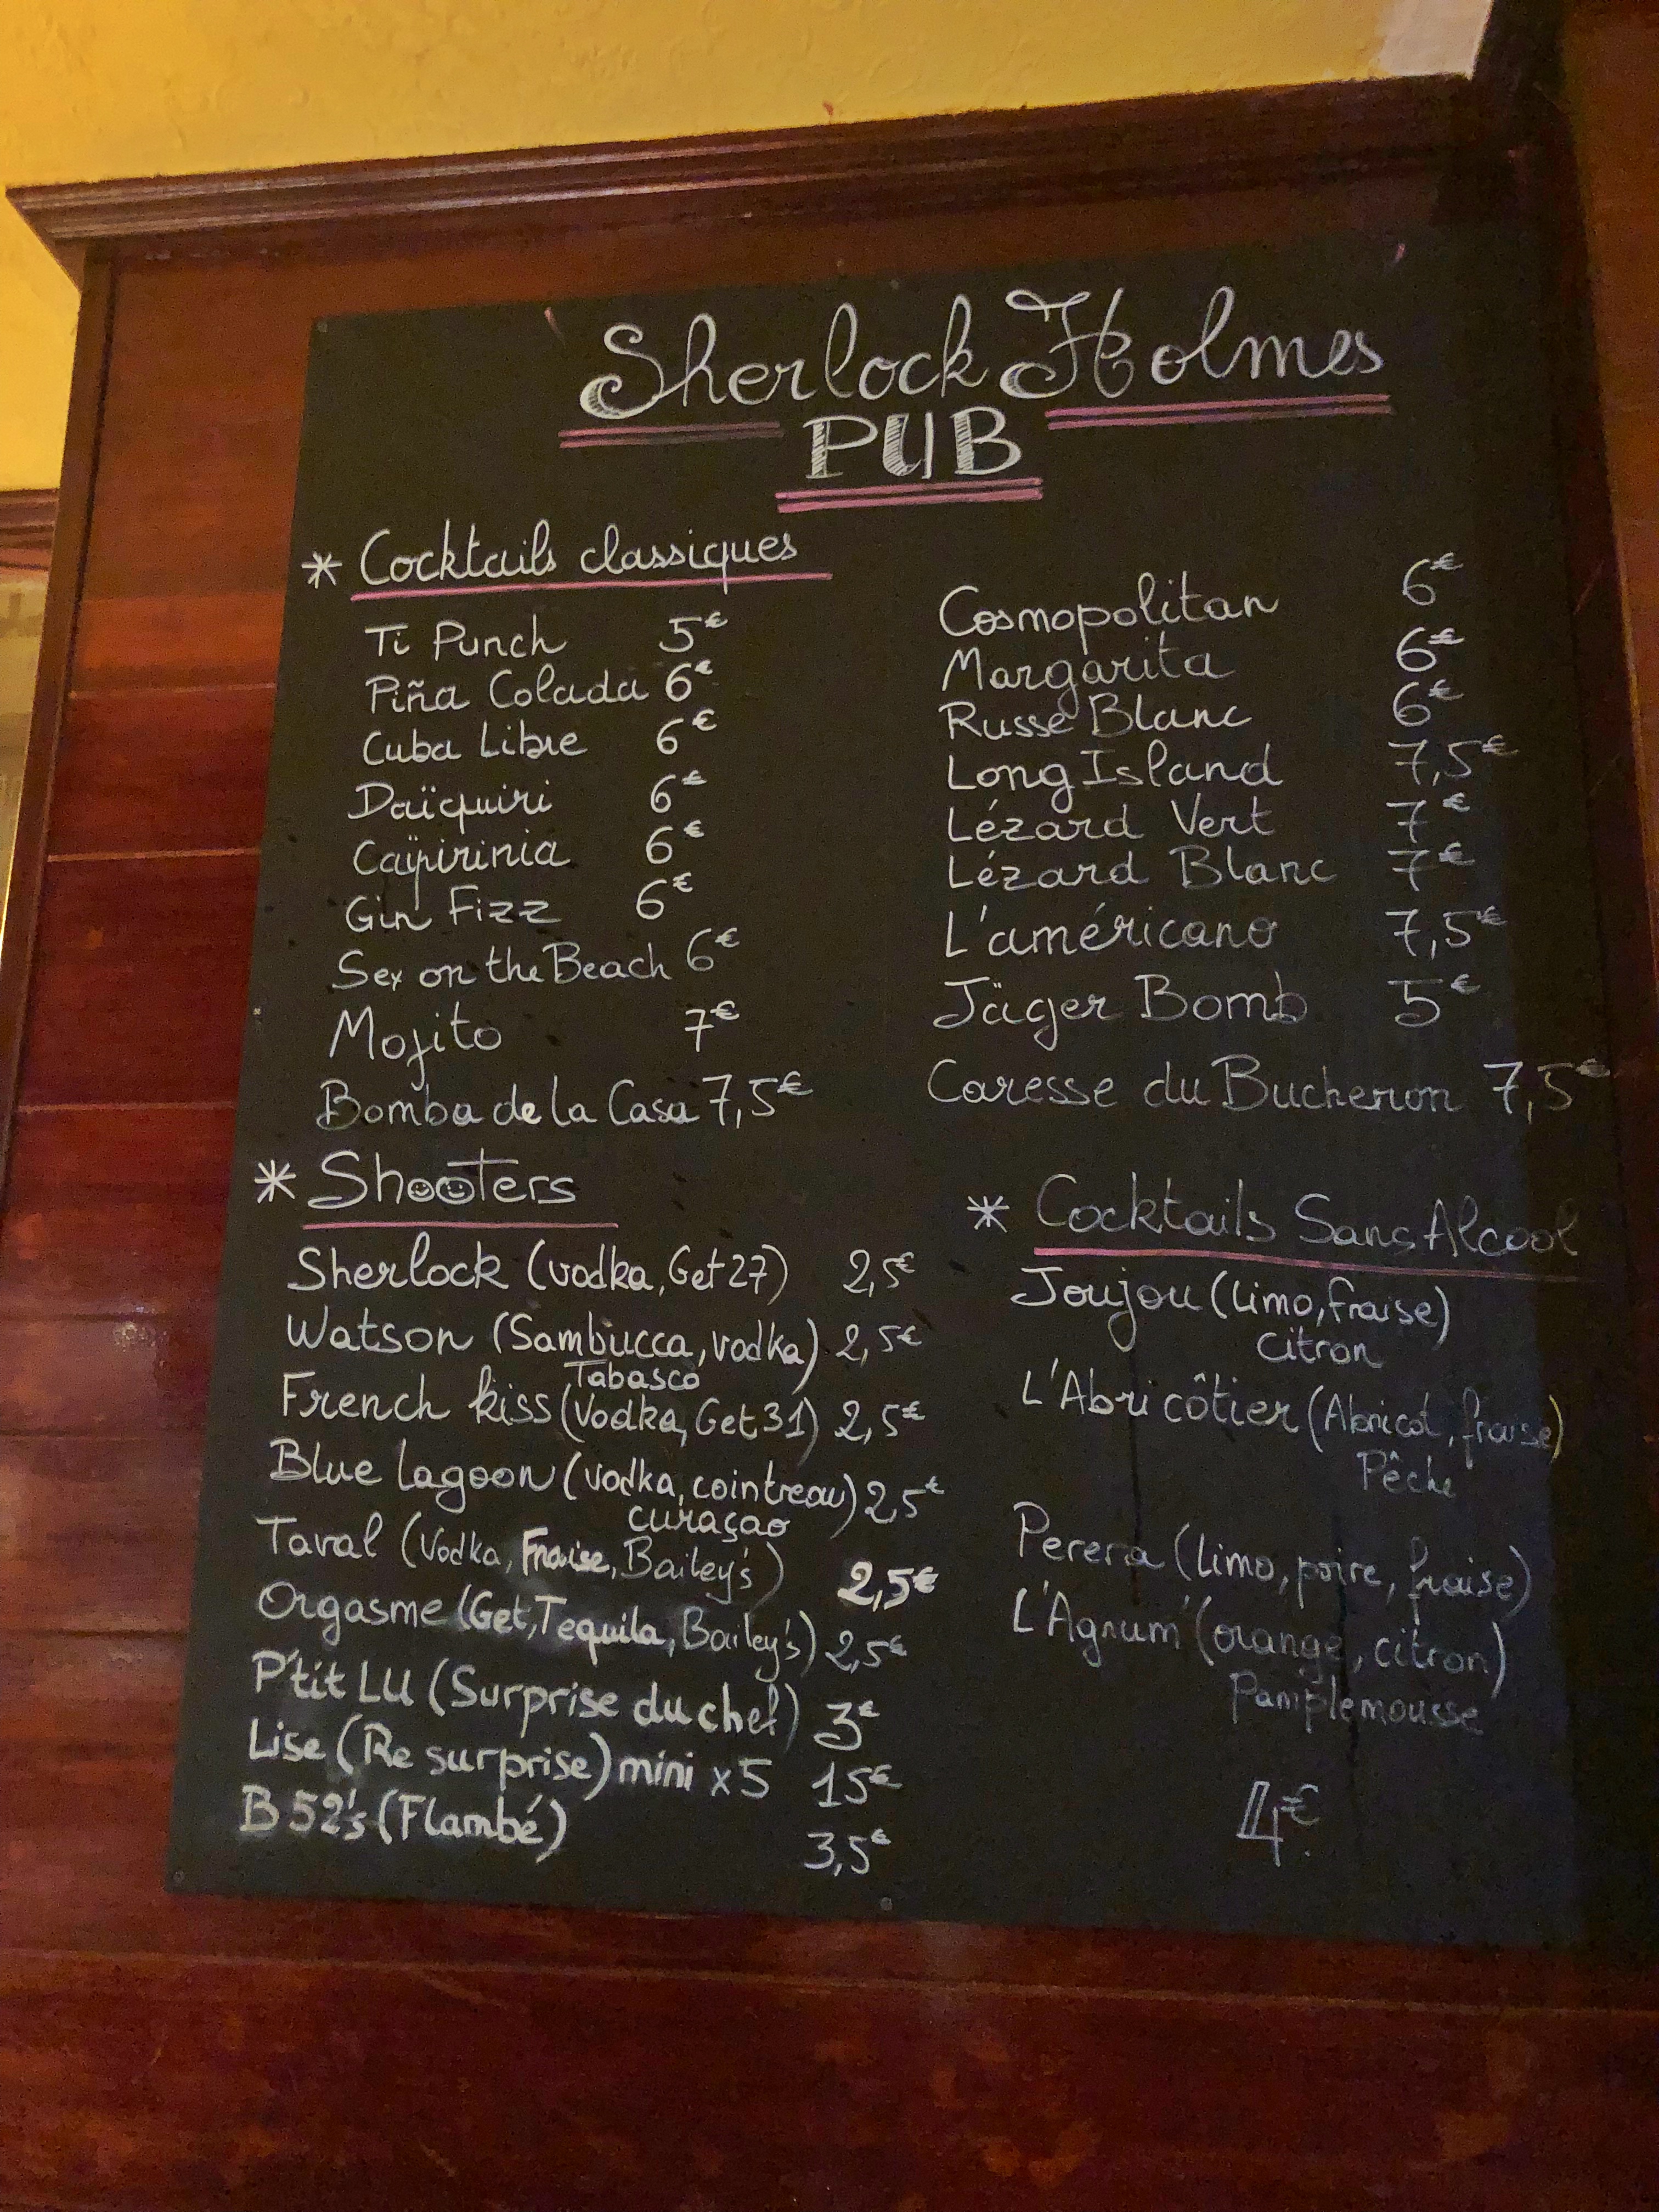 Sherlock Holmes
PUB
* Cocktails classiques
Ti Punch 5€
Piña Colada 6€
Cuba Libre 6€
Daïquiri 6€
Caïpirinia 6€
Gin Fizz 6€
Sex on the Beach 6€
Mojito 7€
Bomba de la Casa 7,5€
Cosmopolitan 6€
Margarita 6€
Russe Blanc 6€
Long Island 7,5€
Lézard Vert 7€
Lézard Blanc 7€
L'américano 7,5€
Jäger Bomb 5€
Caresse du Bucheron 7,5€
* Shooters
Sherlock (vodka, Get 27) 2,5€
Watson (Sambucca, vodka) 2,5€
Tabasco
French kiss (Vodka, Get 31) 2,5€
Blue lagoon (vodka, cointreau) 2,5€
curaçao
Taval (Vodka, Fraise, Bailey's) 2,5€
Orgasme (Get, Tequila, Bailey's) 2,5€
P'tit LU (Surprise du chef) 3€
Lise (Re surprise) mini x5 15€
B 52's (Flambé) 3,5€
* Cocktails Sans Alcool
Joujou (limo, fraise)
citron
L'Abricôtier (Abricot, fraise)
Pêche
Perera (limo, poire, fraise)
L'Agrum' (orange, citron)
Pamplemousse
4€